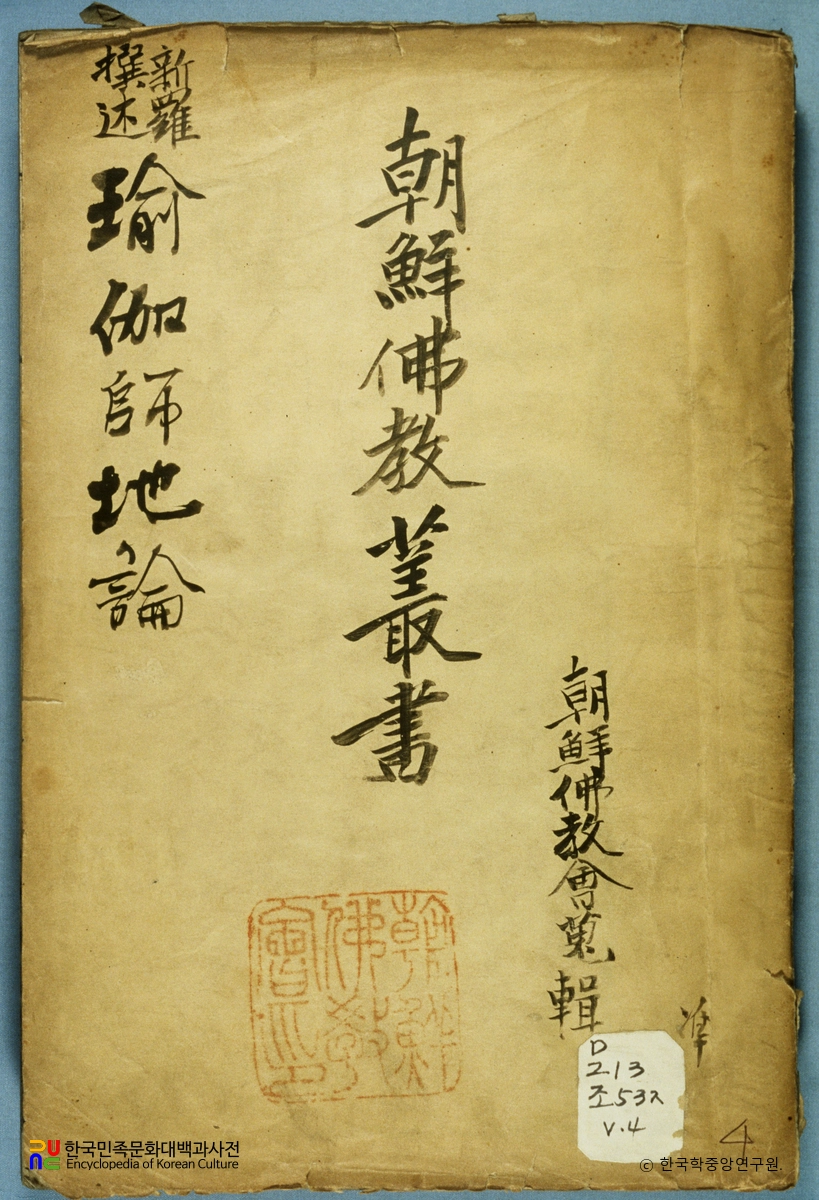 新羅
撰述
瑜伽師地論
朝鮮佛教叢書
朝鮮佛教會蒐輯
朝鮮
佛教
會印
D
213
조53ㅈ
v.4
4
한국민족문화대백과사전
Encyclopedia of Korean Culture
© 한국학중앙연구원.